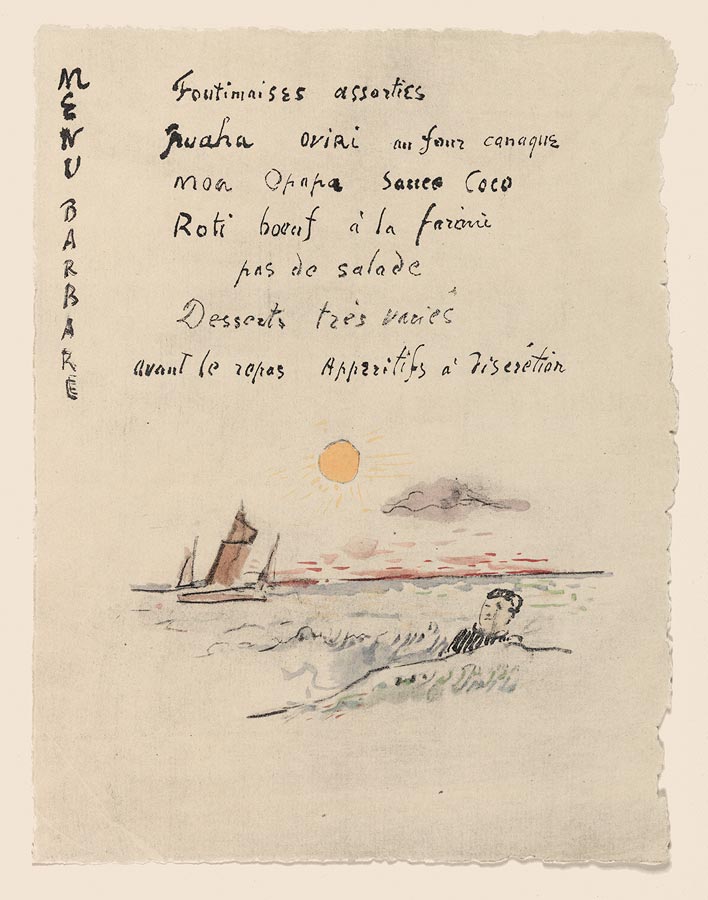 MENU BARBARE
Foutimaises assorties
Puaha oviri au four canaque
moa Opapa Sauce Coco
Roti bœuf à la farani
pas de salade
Desserts très variés
avant le repas Apperitifs à discrétion